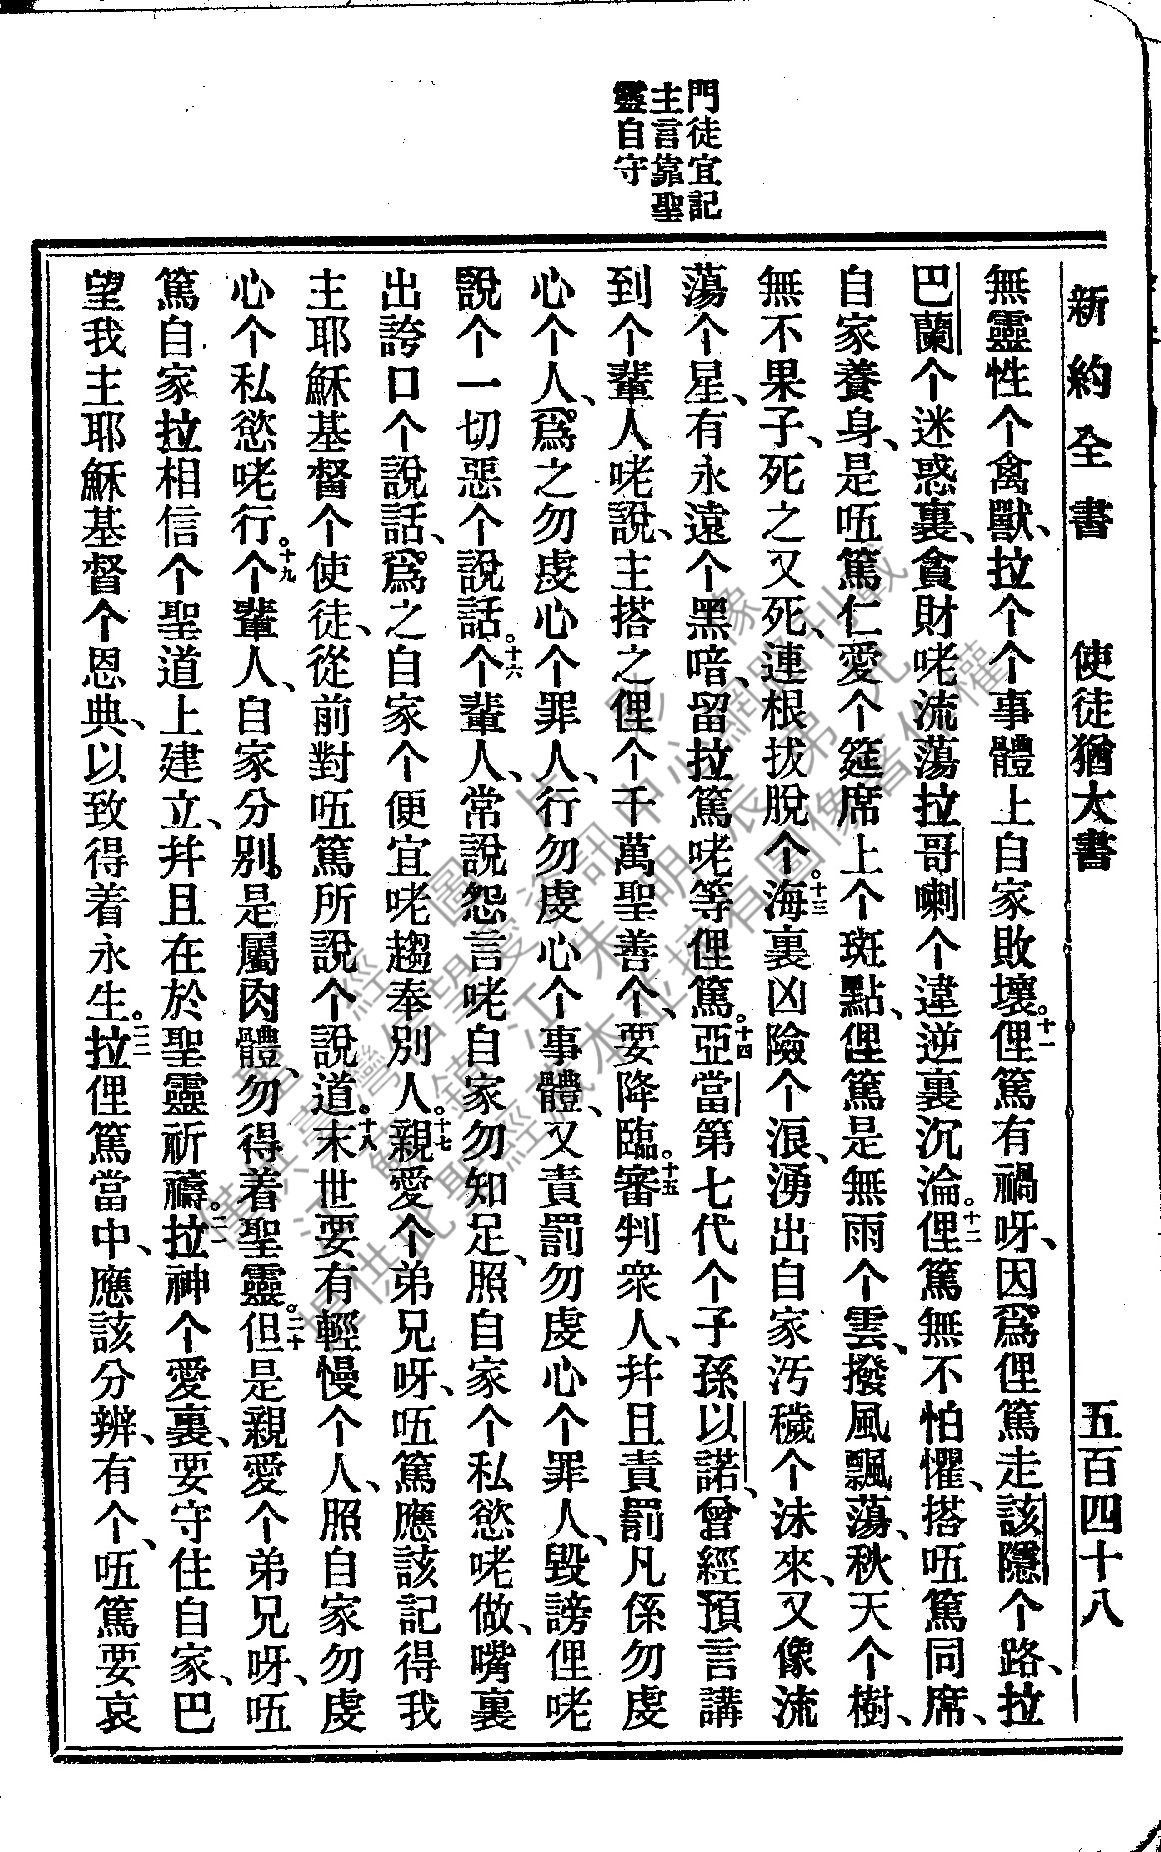 新約全書　使徒猶大書　五百四十八
門徒宜記
主言靠聖
靈自守
無靈性个禽獸、拉个个事體上自家敗壞。十一俚篤有禍呀、因爲俚篤走該隱个路、拉
巴蘭个迷惑裏、貪財咾流蕩拉哥喇个違逆裏沉淪。十二俚篤無不怕懼、搭㕶篤同席、
自家養身、是㕶篤仁愛个筵席上个斑點、俚篤是無雨个雲、撥風飄蕩、秋天个樹、
無不果子、死之又死、連根拔脫个。十三海裏凶險个浪、湧出自家汚穢个沬來、又像流
蕩个星、有永遠个黑暗、留拉篤咾等俚篤。十四亞當第七代个子孫以諾、曾經預言講
到个輩人咾說、主搭之俚个千萬聖善个、要降臨。十五審判衆人、幷且責罰凡係勿虔
心个人、爲之勿虔心个罪人、行勿虔心个事體、又責罰勿虔心个罪人、毀謗俚咾
說个一切惡个說話。十六个輩人、常說怨言咾自家勿知足、照自家个私慾咾做、嘴裏
出誇口个說話、爲之自家个便宜咾趨奉別人。十七親愛个弟兄呀、㕶篤應該記得我
主耶穌基督个使徒、從前對㕶篤所說个說道。十八末世要有輕慢个人、照自家勿虔
心个私慾咾行。十九个輩人、自家分別。是屬肉體、勿得着聖靈。二十但是親愛个弟兄呀、㕶
篤自家拉相信个聖道上建立、幷且在於聖靈祈禱。二一拉神个愛裏、要守住自家、巴
望我主耶穌基督个恩典、以致得着永生。二二拉俚篤當中、應該分辨、有个、㕶篤要哀